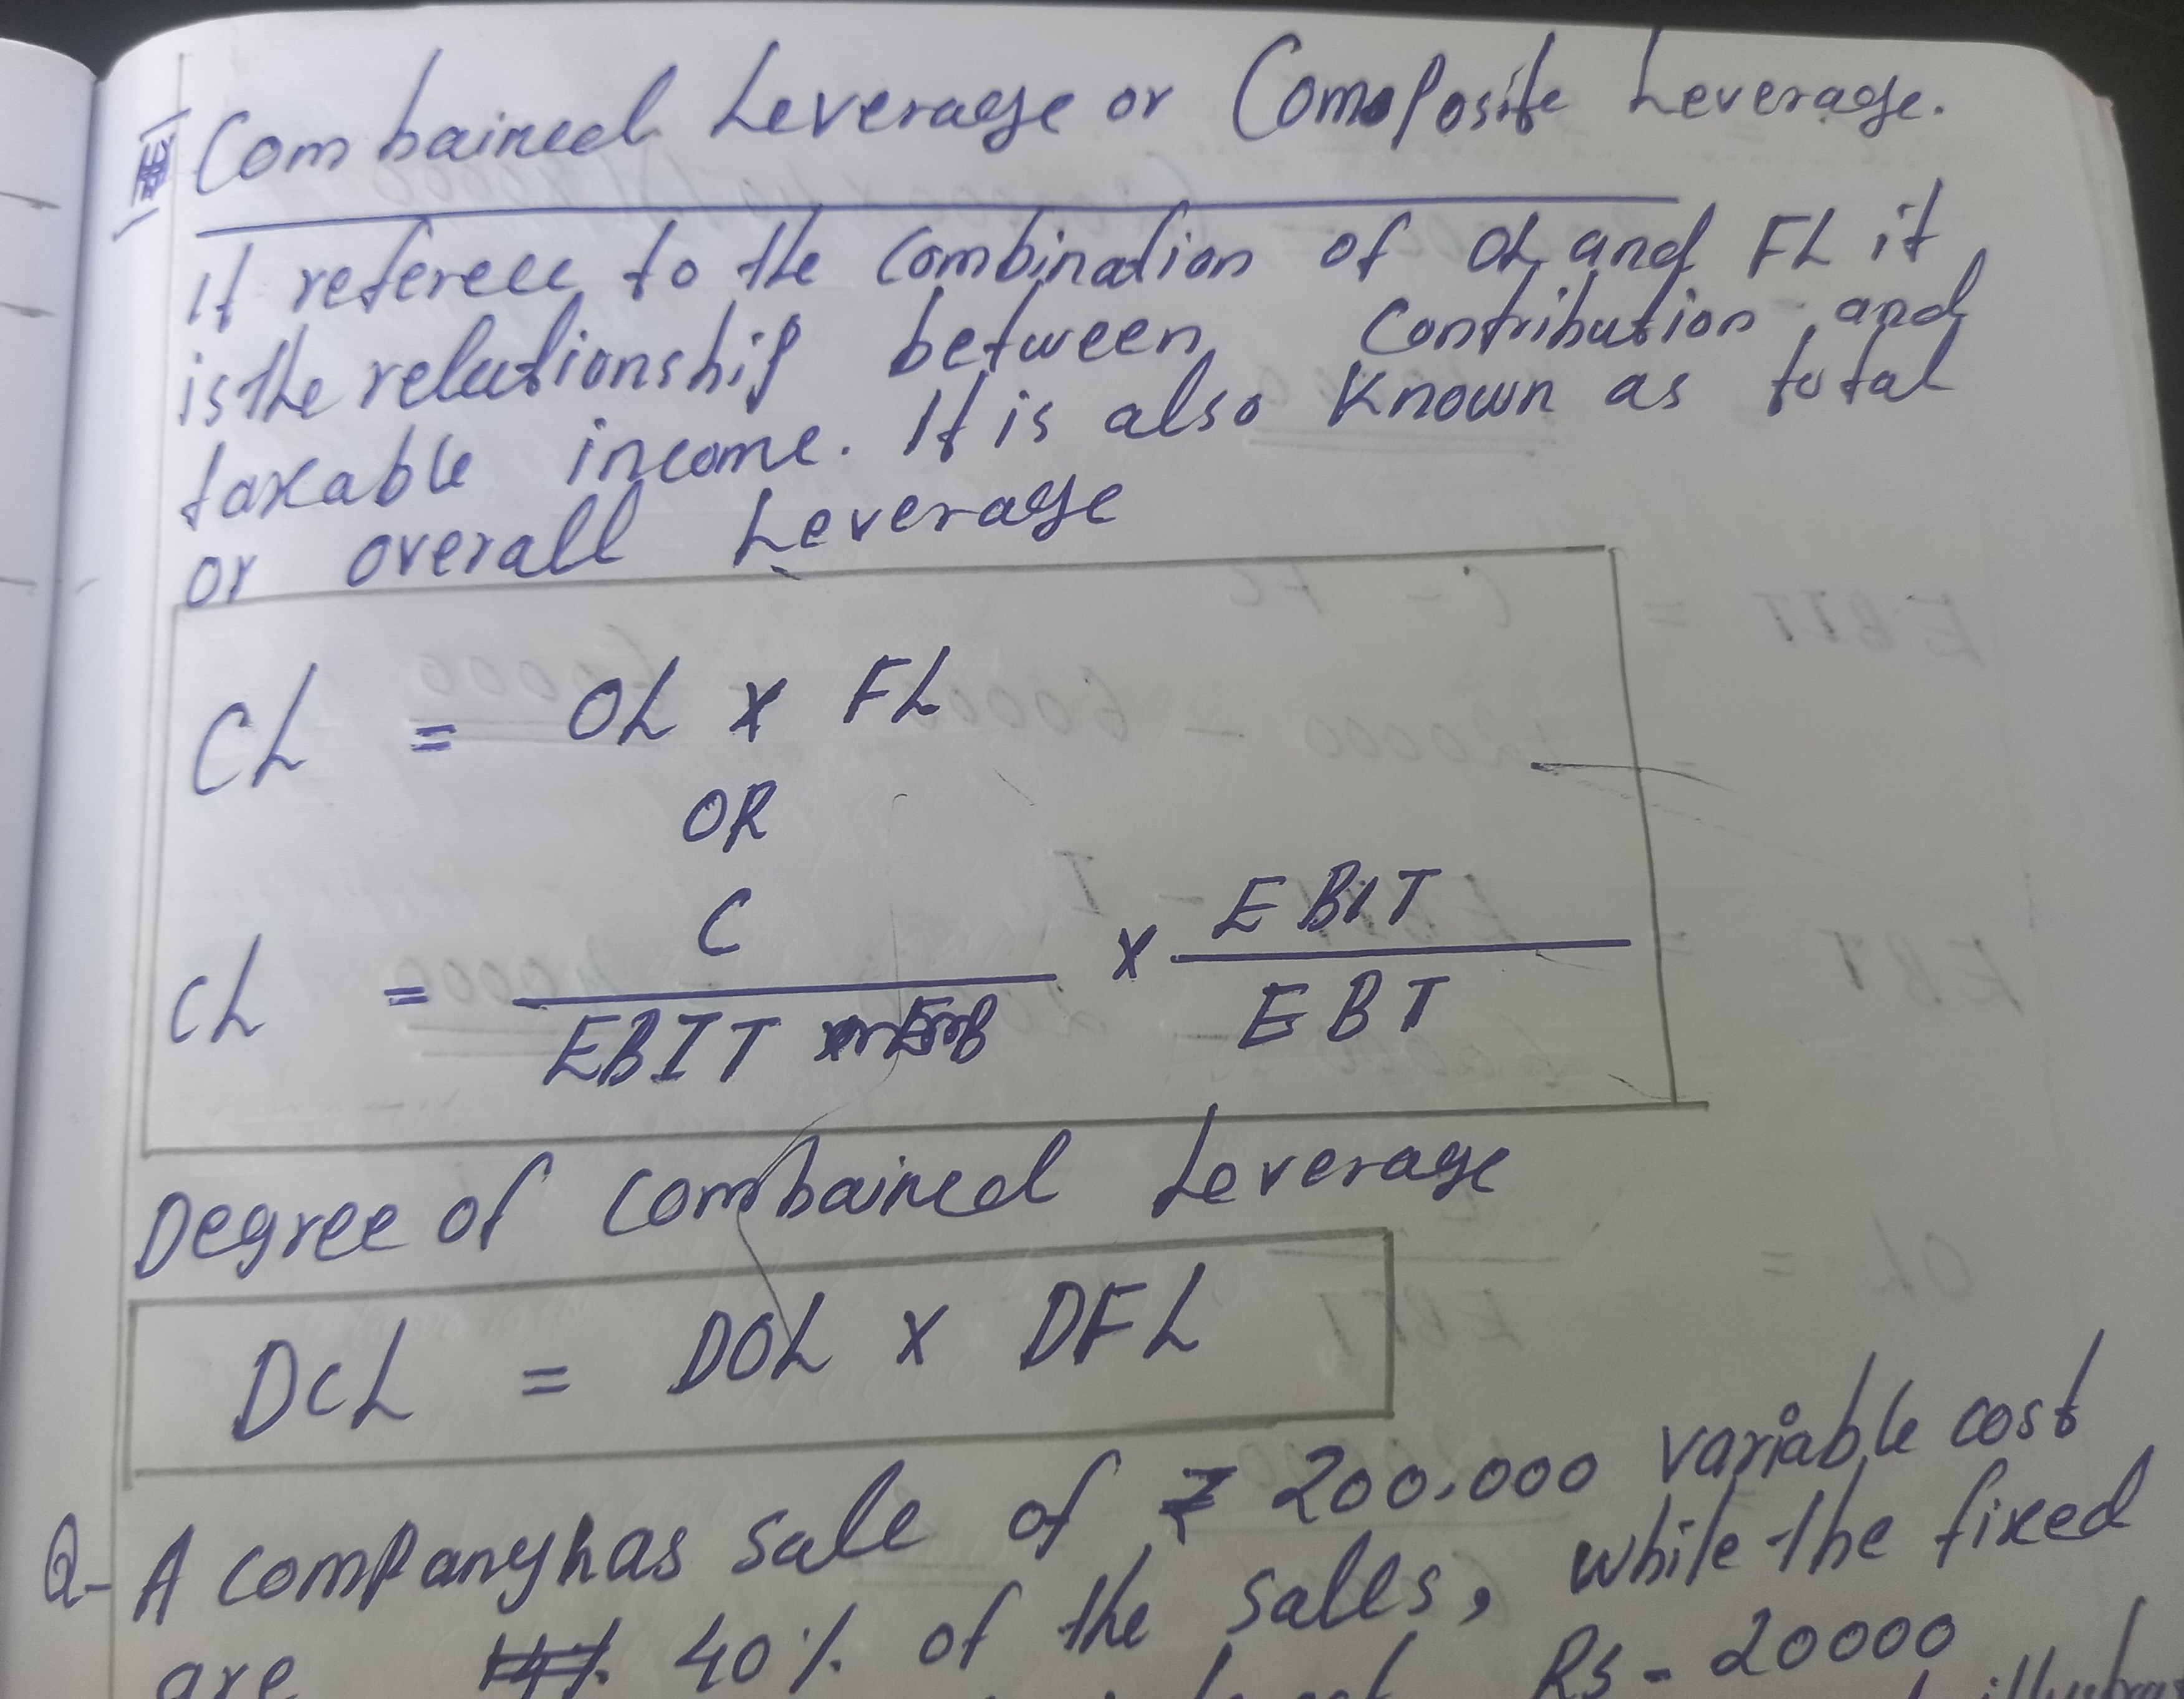 III Combained Leverage or Composite Leverage.
It refereee to the combination of OL and FL it
is the relationship between contribution and
taxable income. It is also known as total
or overall Leverage
CL = OL x FL
OR
CL = C / EBIT x EBIT / EBT
Degree of combained Leverage
DCL = DOL x DFL
Q- A company has sale of ₹ 200.000 variable cost
are 40% of the salls, while the fixed
Rs - 20000